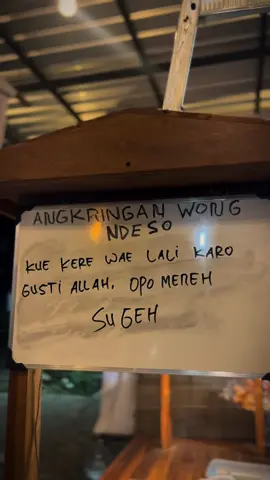 ANGKRINGAN WONG
NDESO
KUE KERE WAE LALI KARO
GUSTI ALLAH, OPO MENEH
SUGEH